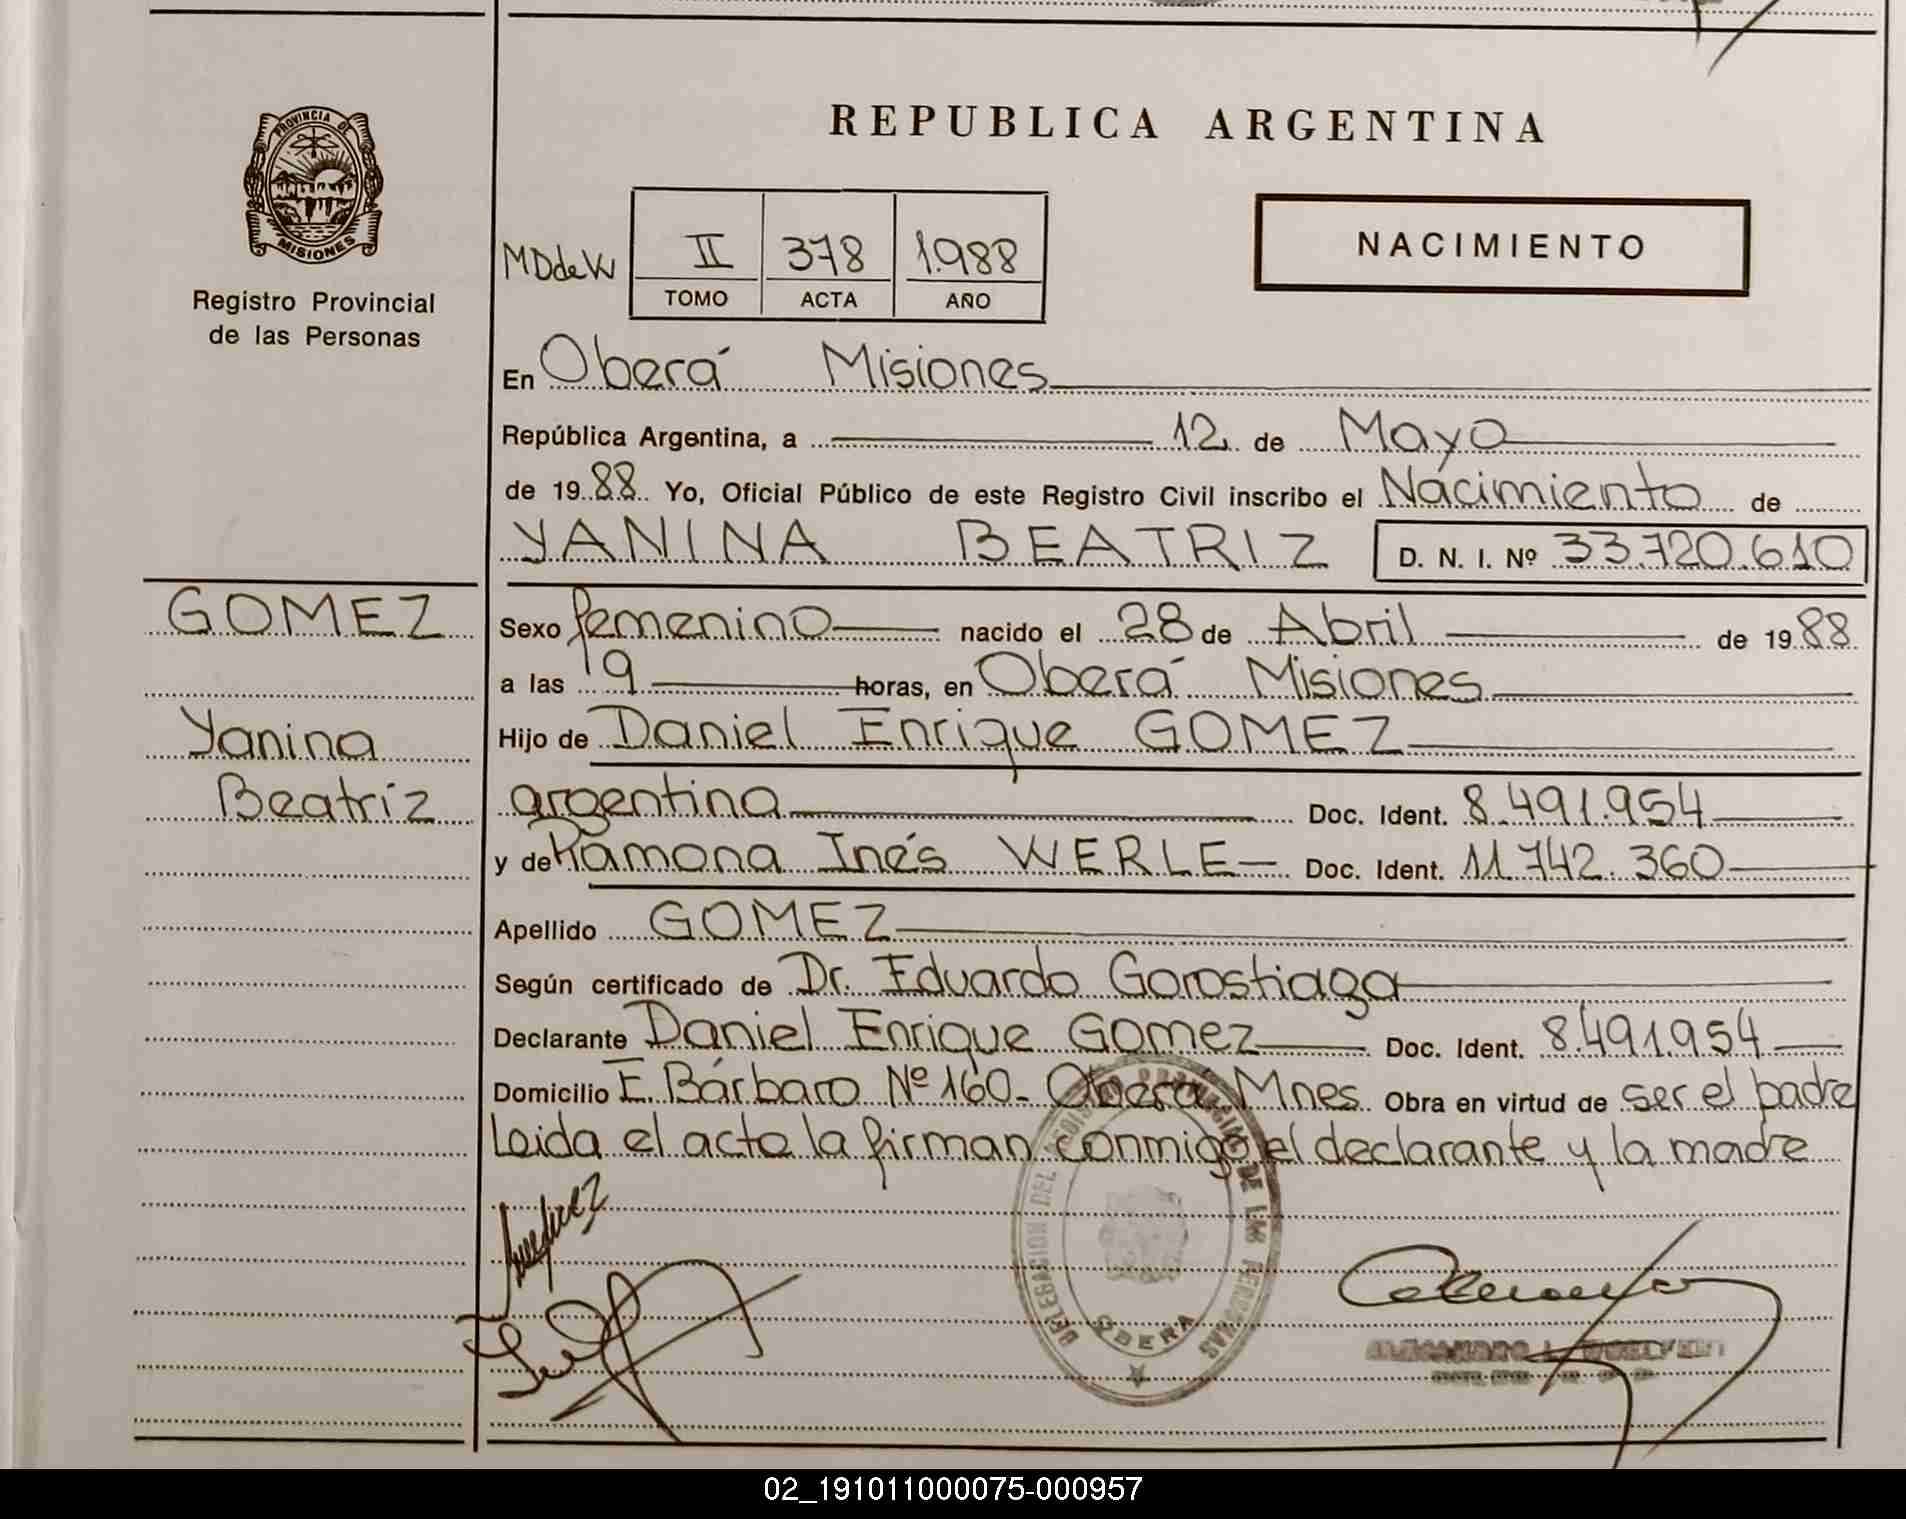 REPUBLICA ARGENTINA
PROVINCIA DE
MISIONES
Registro Provincial
de las Personas
MDdeW
II 378 1.988
TOMO ACTA AÑO
NACIMIENTO
En Oberá Misiones
República Argentina, a 12 de Mayo
de 19 88 Yo, Oficial Público de este Registro Civil inscribo el Nacimiento de
YANINA BEATRIZ D. N. I. Nº 33.720.610
GOMEZ
Yanina
Beatríz
Sexo femenino nacido el 28 de Abril de 19 88
a las 9 horas, en Oberá Misiones
Hijo de Daniel Enrique GOMEZ
argentina Doc. Ident. 8.491.954
y de Ramona Inés WERLE Doc. Ident. 11.742.360
Apellido GOMEZ
Según certificado de Dr. Eduardo Gorostiaga
Declarante Daniel Enrique Gomez Doc. Ident. 8.491.954
Domicilio E. Bárbaro Nº 160- Oberá Mnes Obra en virtud de ser el padre
Leida el acta la firman conmigo el declarante y la madre
DELEGACION DEL REGISTRO PROVINCIAL DE LAS PERSONAS
OBERA
02_191011000075-000957